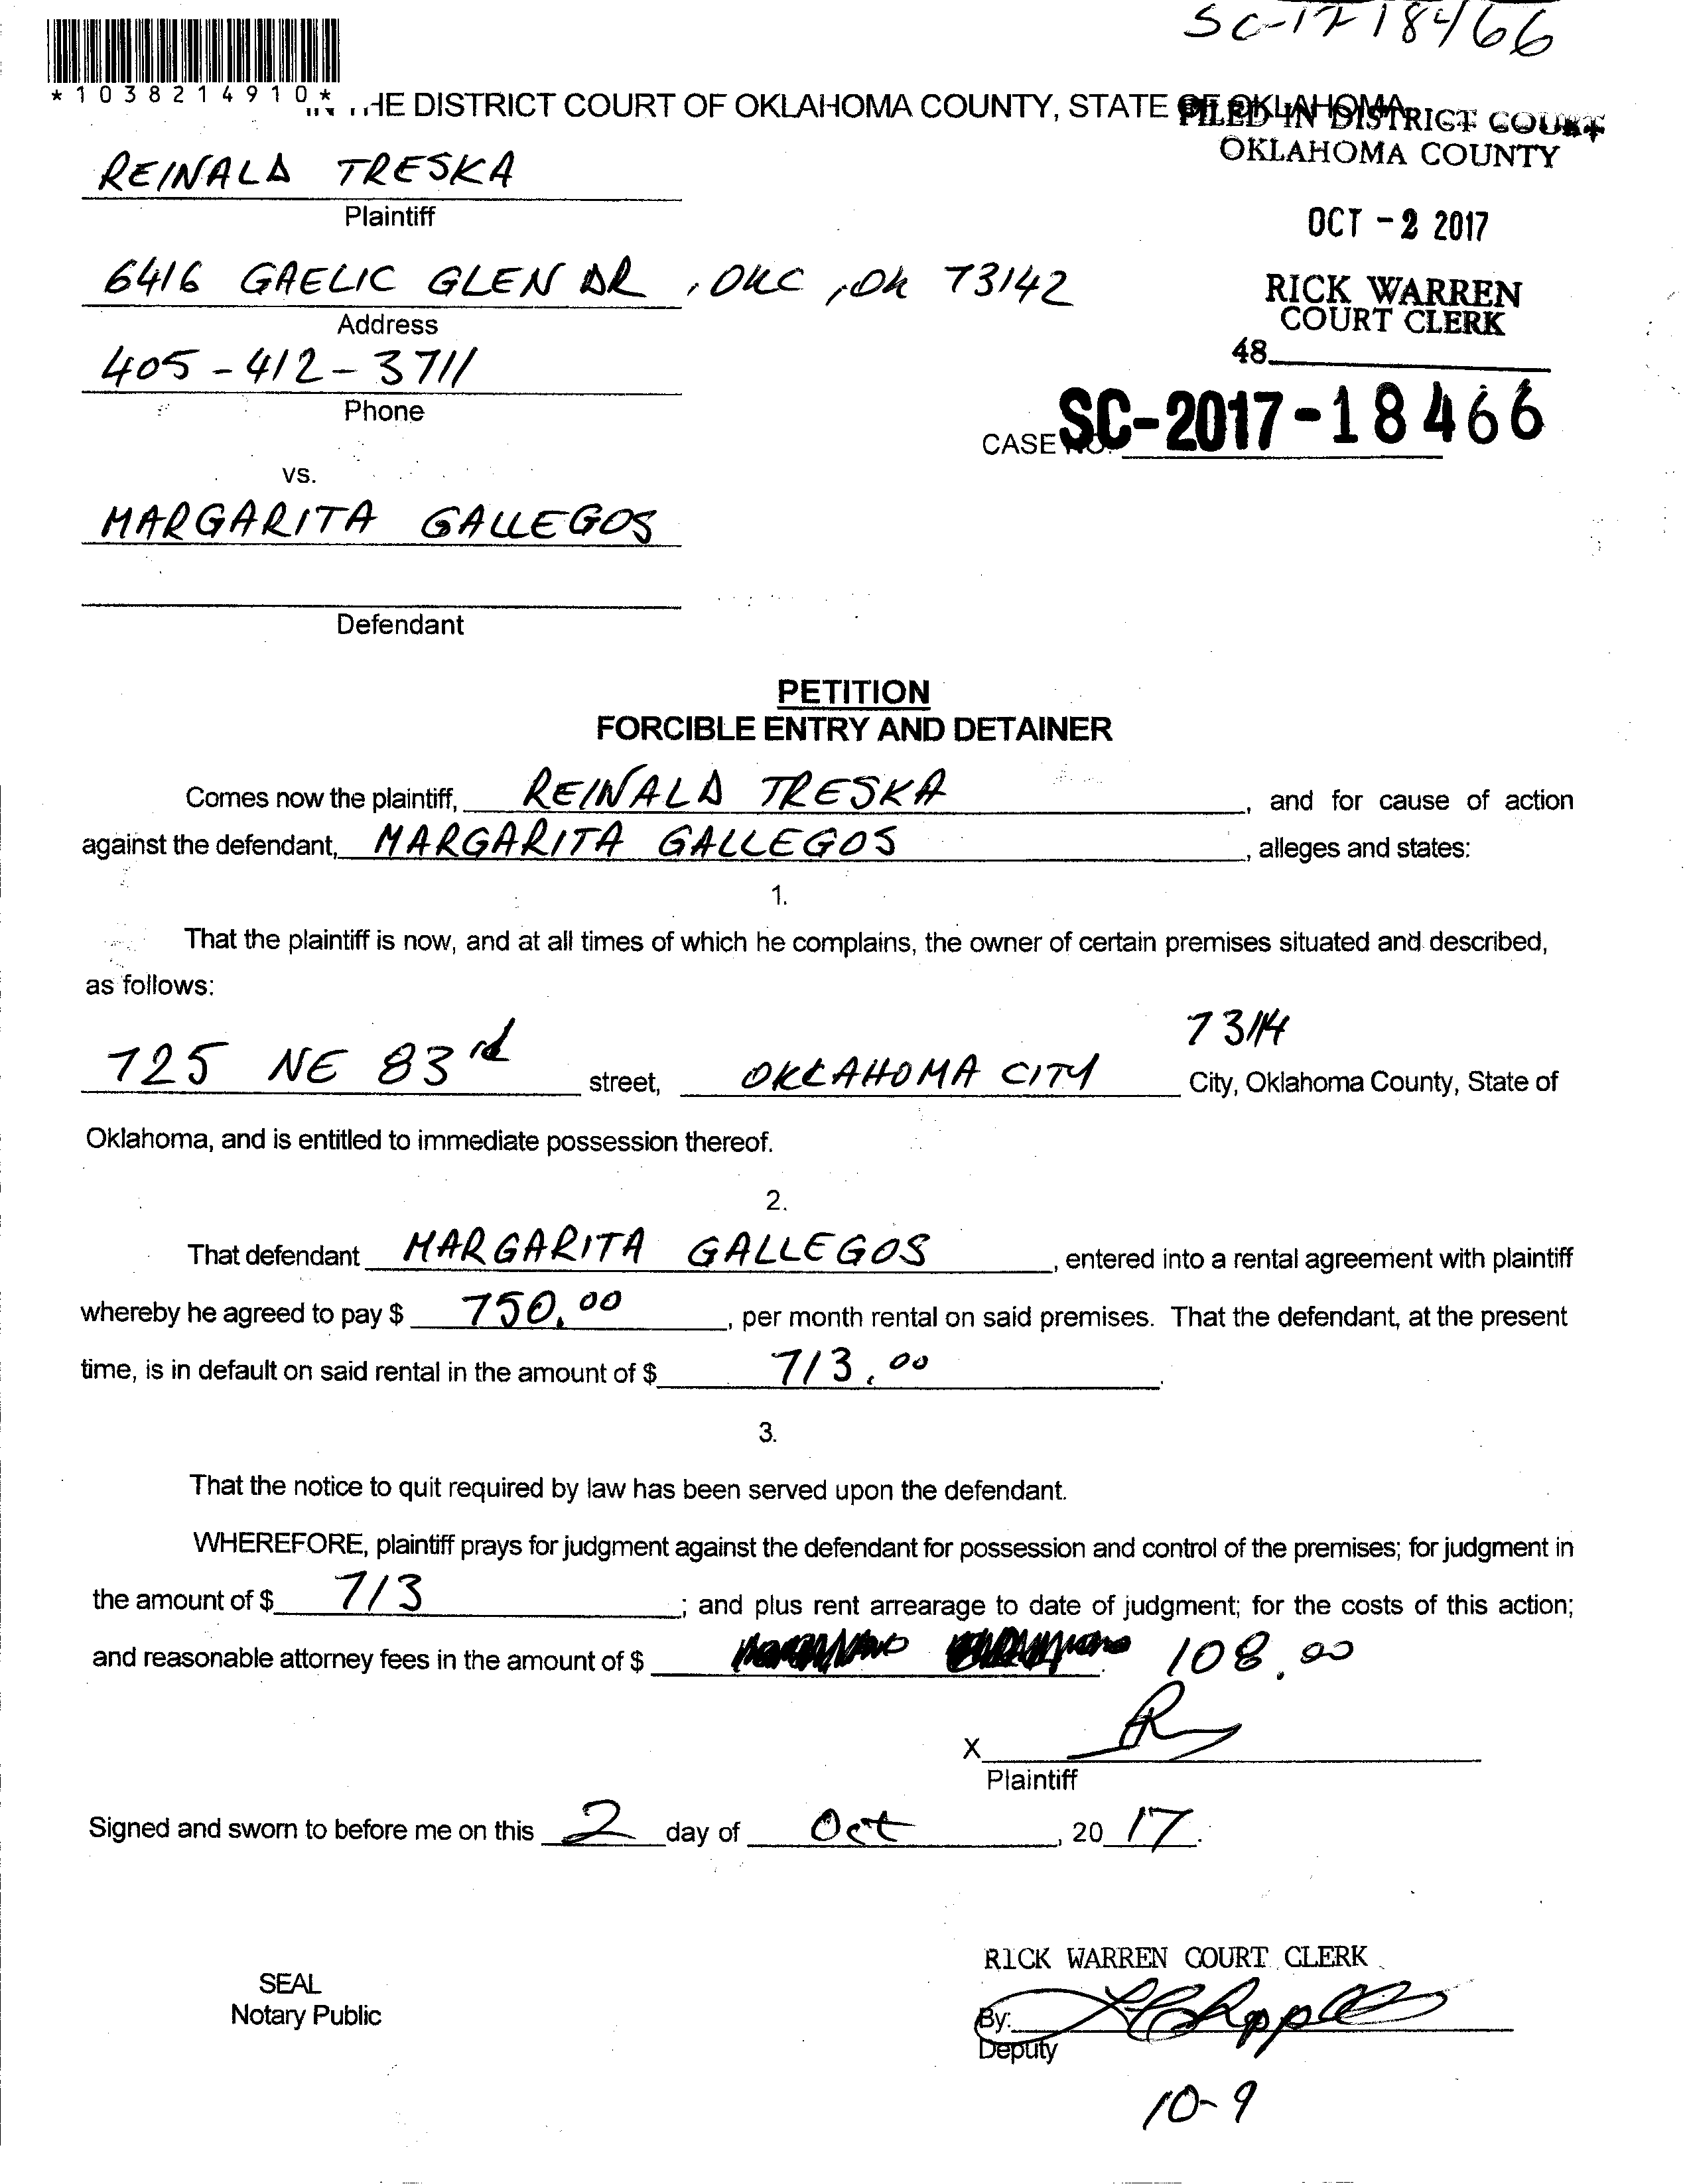 SC-17 18466
*1038214910*
HE DISTRICT COURT OF OKLAHOMA COUNTY, STATE OF OKLAHOMA
FILED IN DISTRICT COURT
OKLAHOMA COUNTY
REINALD TRESKA
Plaintiff
OCT -2 2017
6416 GAELIC GLEN DR, OKC, OK 73142
Address
RICK WARREN
COURT CLERK
405-412-3711
Phone
48
CASE NO. SC-2017-18466
vs.
MARGARITA GALLEGOS
Defendant
PETITION
FORCIBLE ENTRY AND DETAINER
Comes now the plaintiff, REINALD TRESKA, and for cause of action
against the defendant, MARGARITA GALLEGOS, alleges and states:
1.
That the plaintiff is now, and at all times of which he complains, the owner of certain premises situated and described,
as follows:
73114
725 NE 83rd street, OKLAHOMA CITY City, Oklahoma County, State of
Oklahoma, and is entitled to immediate possession thereof.
2.
That defendant MARGARITA GALLEGOS, entered into a rental agreement with plaintiff
whereby he agreed to pay $ 750.00, per month rental on said premises. That the defendant, at the present
time, is in default on said rental in the amount of $ 713.00.
3.
That the notice to quit required by law has been served upon the defendant.
WHEREFORE, plaintiff prays for judgment against the defendant for possession and control of the premises; for judgment in
the amount of $ 713; and plus rent arrearage to date of judgment; for the costs of this action;
and reasonable attorney fees in the amount of $ . 108.00
X
Plaintiff
Signed and sworn to before me on this 2 day of Oct, 2017.
RICK WARREN COURT CLERK
SEAL
Notary Public
By:
Deputy
10-9